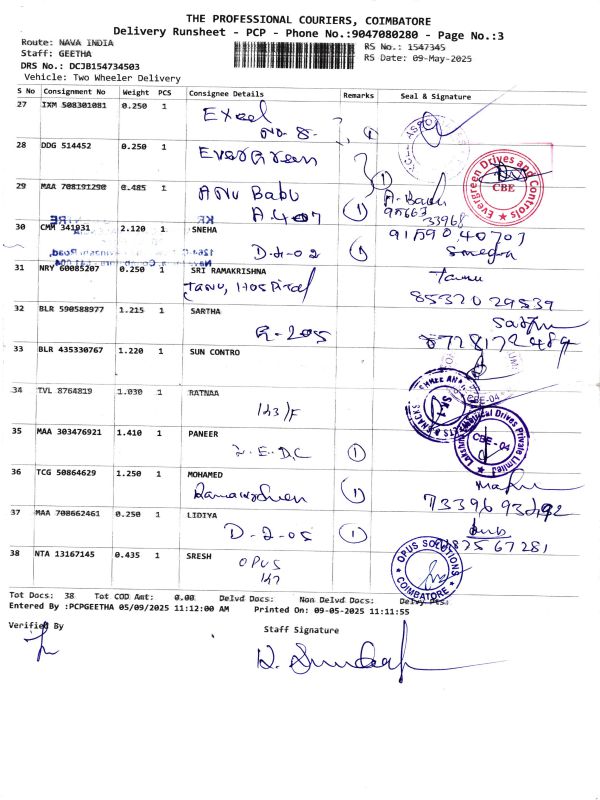 THE PROFESSIONAL COURIERS, COIMBATORE
Delivery Runsheet - PCP - Phone No.:9047080280 - Page No.:3
Route: NAVA INDIA
RS No.: 1547345
Staff: GEETHA
RS Date: 09-May-2025
DRS No.: DCJB154734503
Vehicle: Two Wheeler Delivery
S No Consignment No Weight PCS Consignee Details Remarks Seal & Signature
27 IXM 508301081 0.250 1
Excel
no-8-
1
28 DDG 514452 0.250 1
EverGreen
1
Evergreen Drives and Controls
CBE
29 MAA 708191290 0.485 1
Anu Babu
A.407
1
95663
33968
30 CMM 341931 2.120 1 SNEHA
D-4-02
1
9159040707
Sneha
31 NRY 60085207 0.250 1 SRI RAMAKRISHNA
Tanu, Hospital
Tanu
8532029539
32 BLR 590588977 1.215 1 SARTHA
G-205
8728172489
33 BLR 435330767 1.220 1 SUN CONTRO
34 TVL 8764819 1.030 1 RATNAA
143/F
CBE-04
35 MAA 303476921 1.410 1 PANEER
2.E.D.C
1
Drives Private Limited
CBE - 04
36 TCG 50864629 1.250 1 MOHAMED
1
37 MAA 708662461 0.250 1 LIDIYA
D-2-05
1
38 NTA 13167145 0.435 1 SRESH
OPUS
147
OPUS SOLUTIONS
COIMBATORE
Tot Docs: 38 Tot COD Amt: 0.00 Delvd Docs: Non Delvd Docs: Delvy Pts:
Entered By :PCPGEETHA 05/09/2025 11:12:00 AM Printed On: 09-05-2025 11:11:55
Verified By
Staff Signature